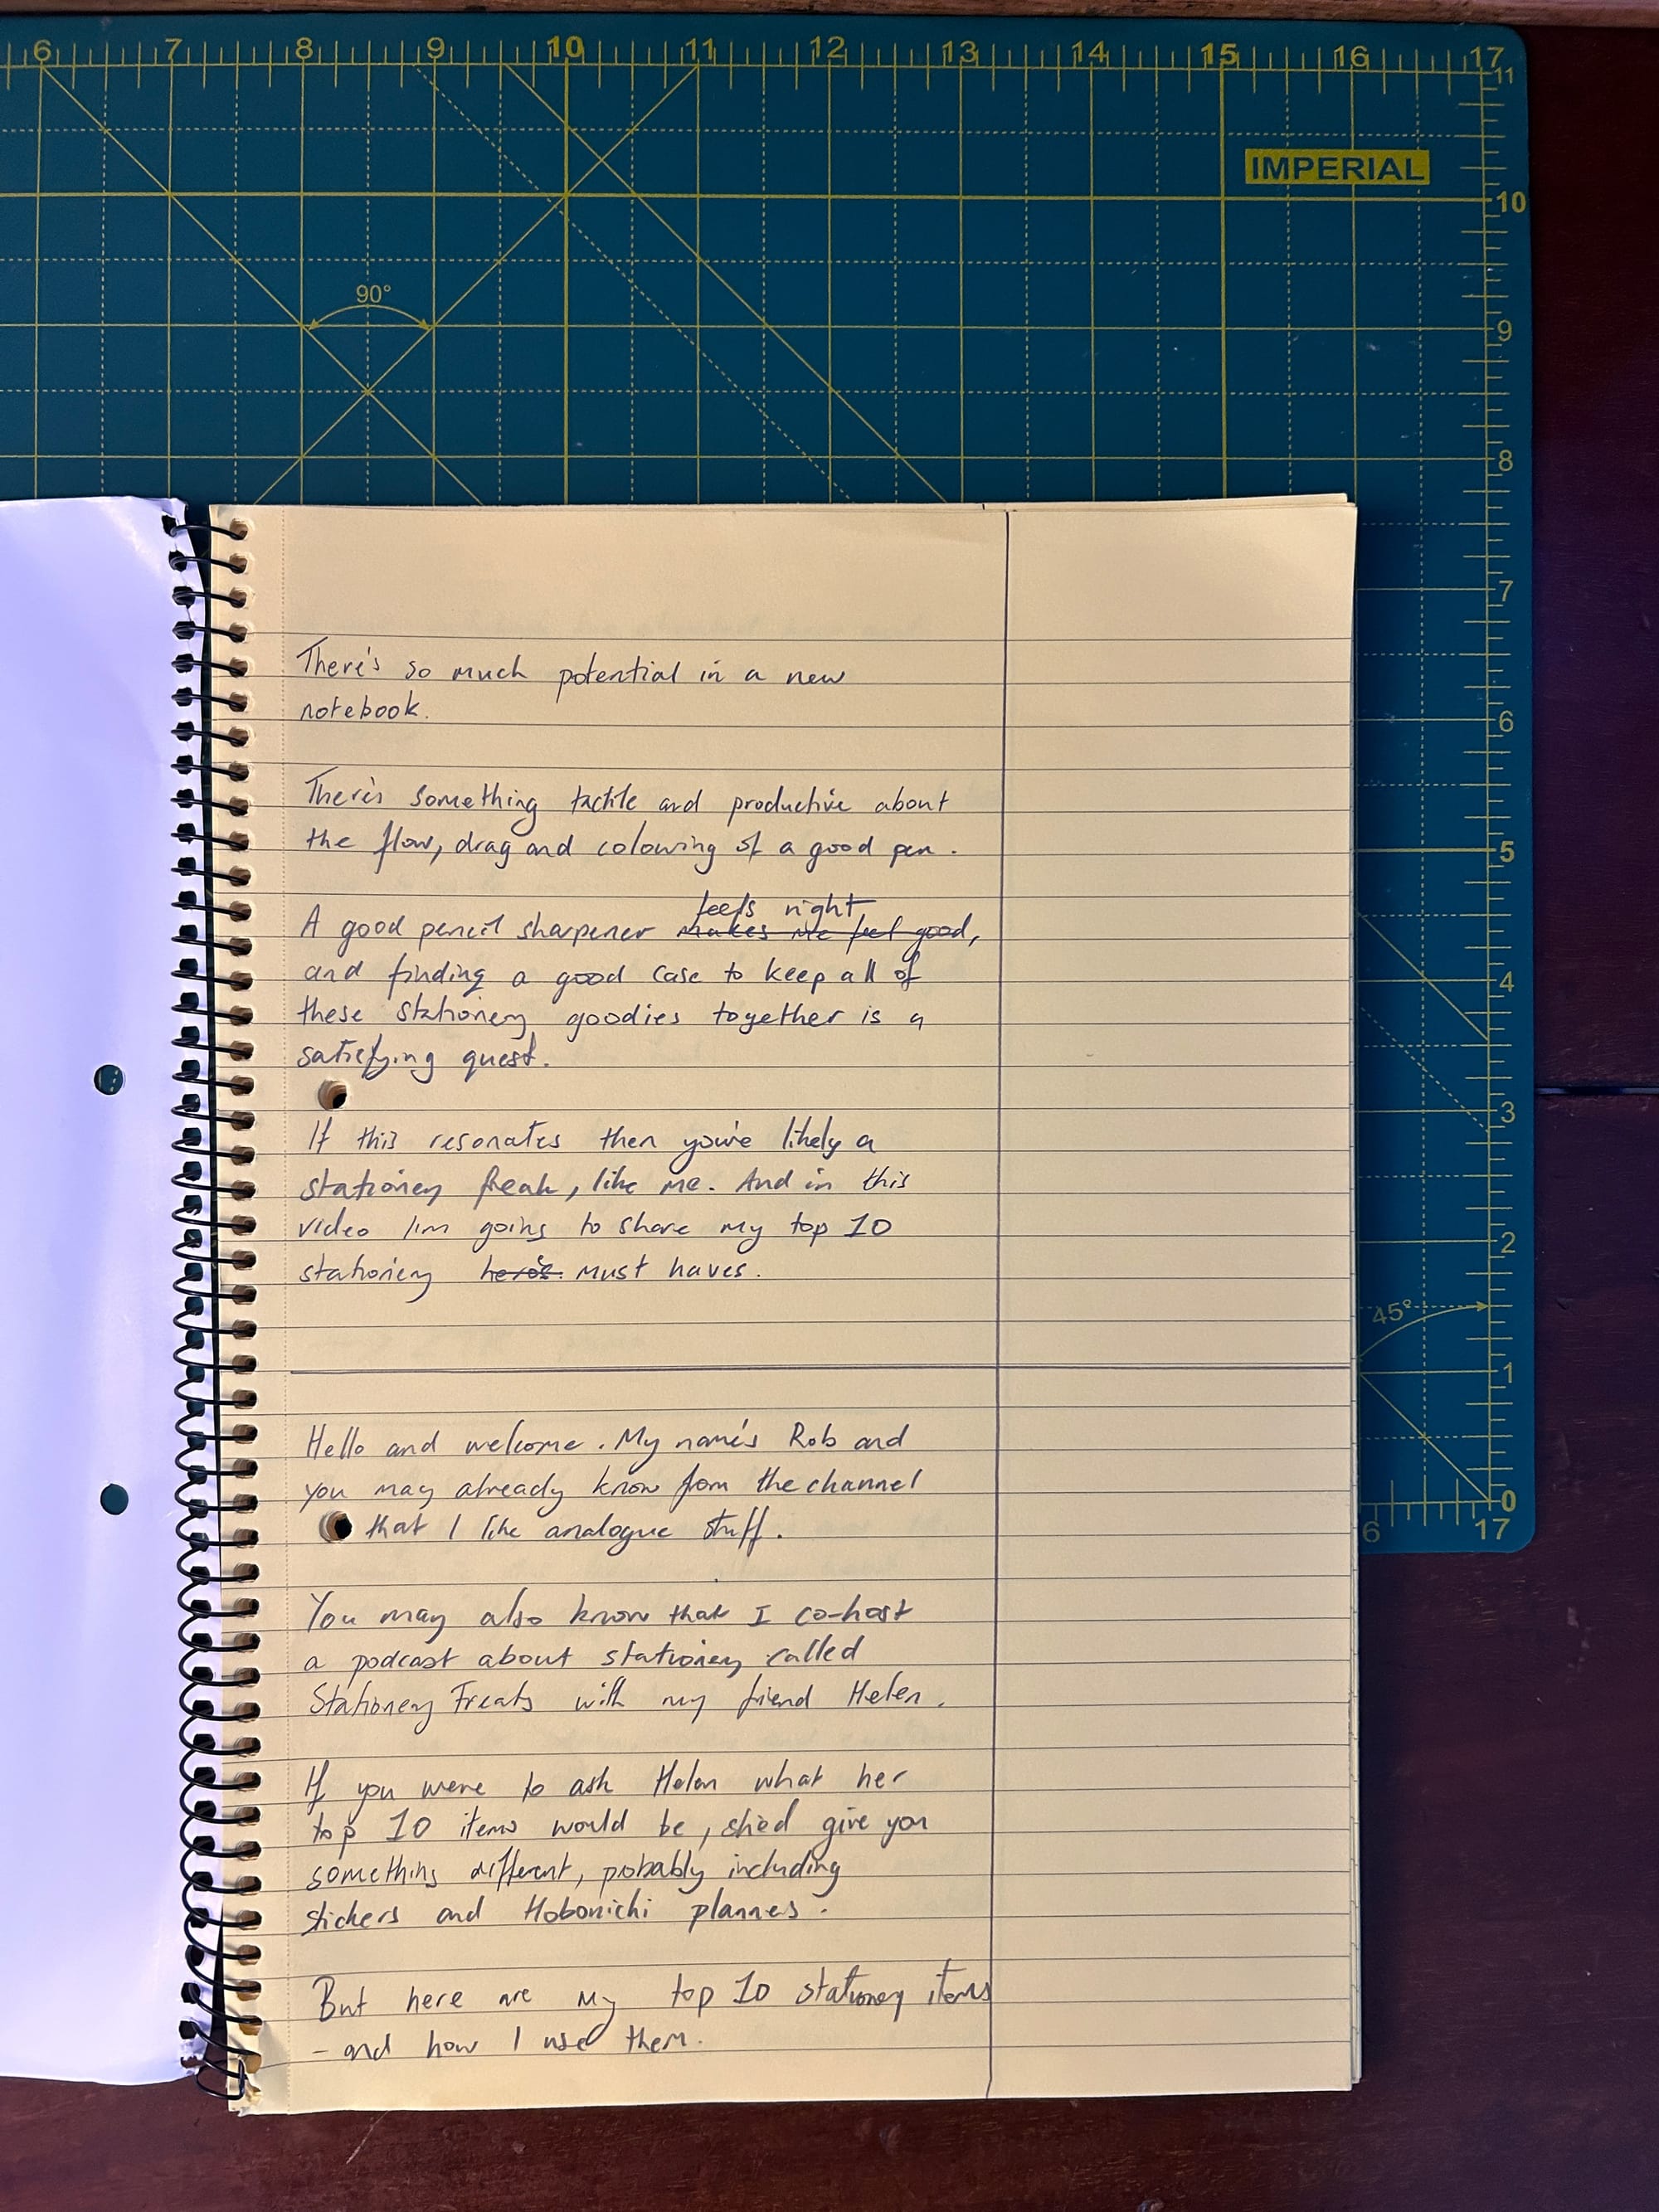 6 7 8 9 10 11 12 13 14 15 16 17
11
IMPERIAL
10
90°
9
8
7
6
5
4
3
2
45°
1
0
6 17
There's so much potential in a new
notebook.
There's something tactile and productive about
the flow, drag and colouring of a good pen.
feels right
A good pencil sharpener makes me feel good,
and finding a good case to keep all of
these stationery goodies together is a
satisfying quest.
If this resonates then you're likely a
stationery freak, like me. And in this
video I'm going to share my top 10
stationery hero's. must haves.
Hello and welcome. My name's Rob and
you may already know from the channel
that I like analogue stuff.
You may also know that I co-host
a podcast about stationery called
Stationery Freaks with my friend Helen.
If you were to ask Helen what her
top 10 items would be, she'd give you
something different, probably including
stickers and Hobonichi planners.
But here are my top 10 stationery items
- and how I use them.